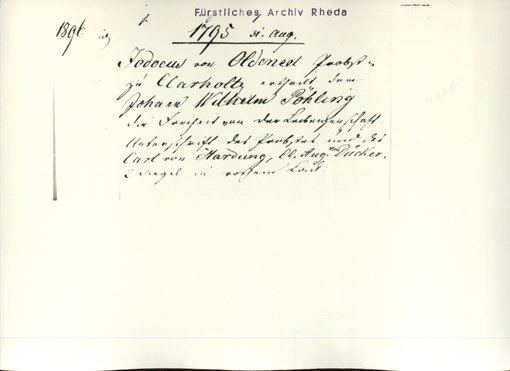 Fürstliches Archiv Rheda
1896
1795 31. Aug.
Jodocus von Oldeneel Probst
zu Clarholtz ertheilt dem
Johann Wilhelm Pöhling
die Freiheit von der Leibeigenschaft
Unterschrift des Probstes und des
Carl von Hardung, Cl. Aug. von Dücker.
2 Siegel in rothem Lack.